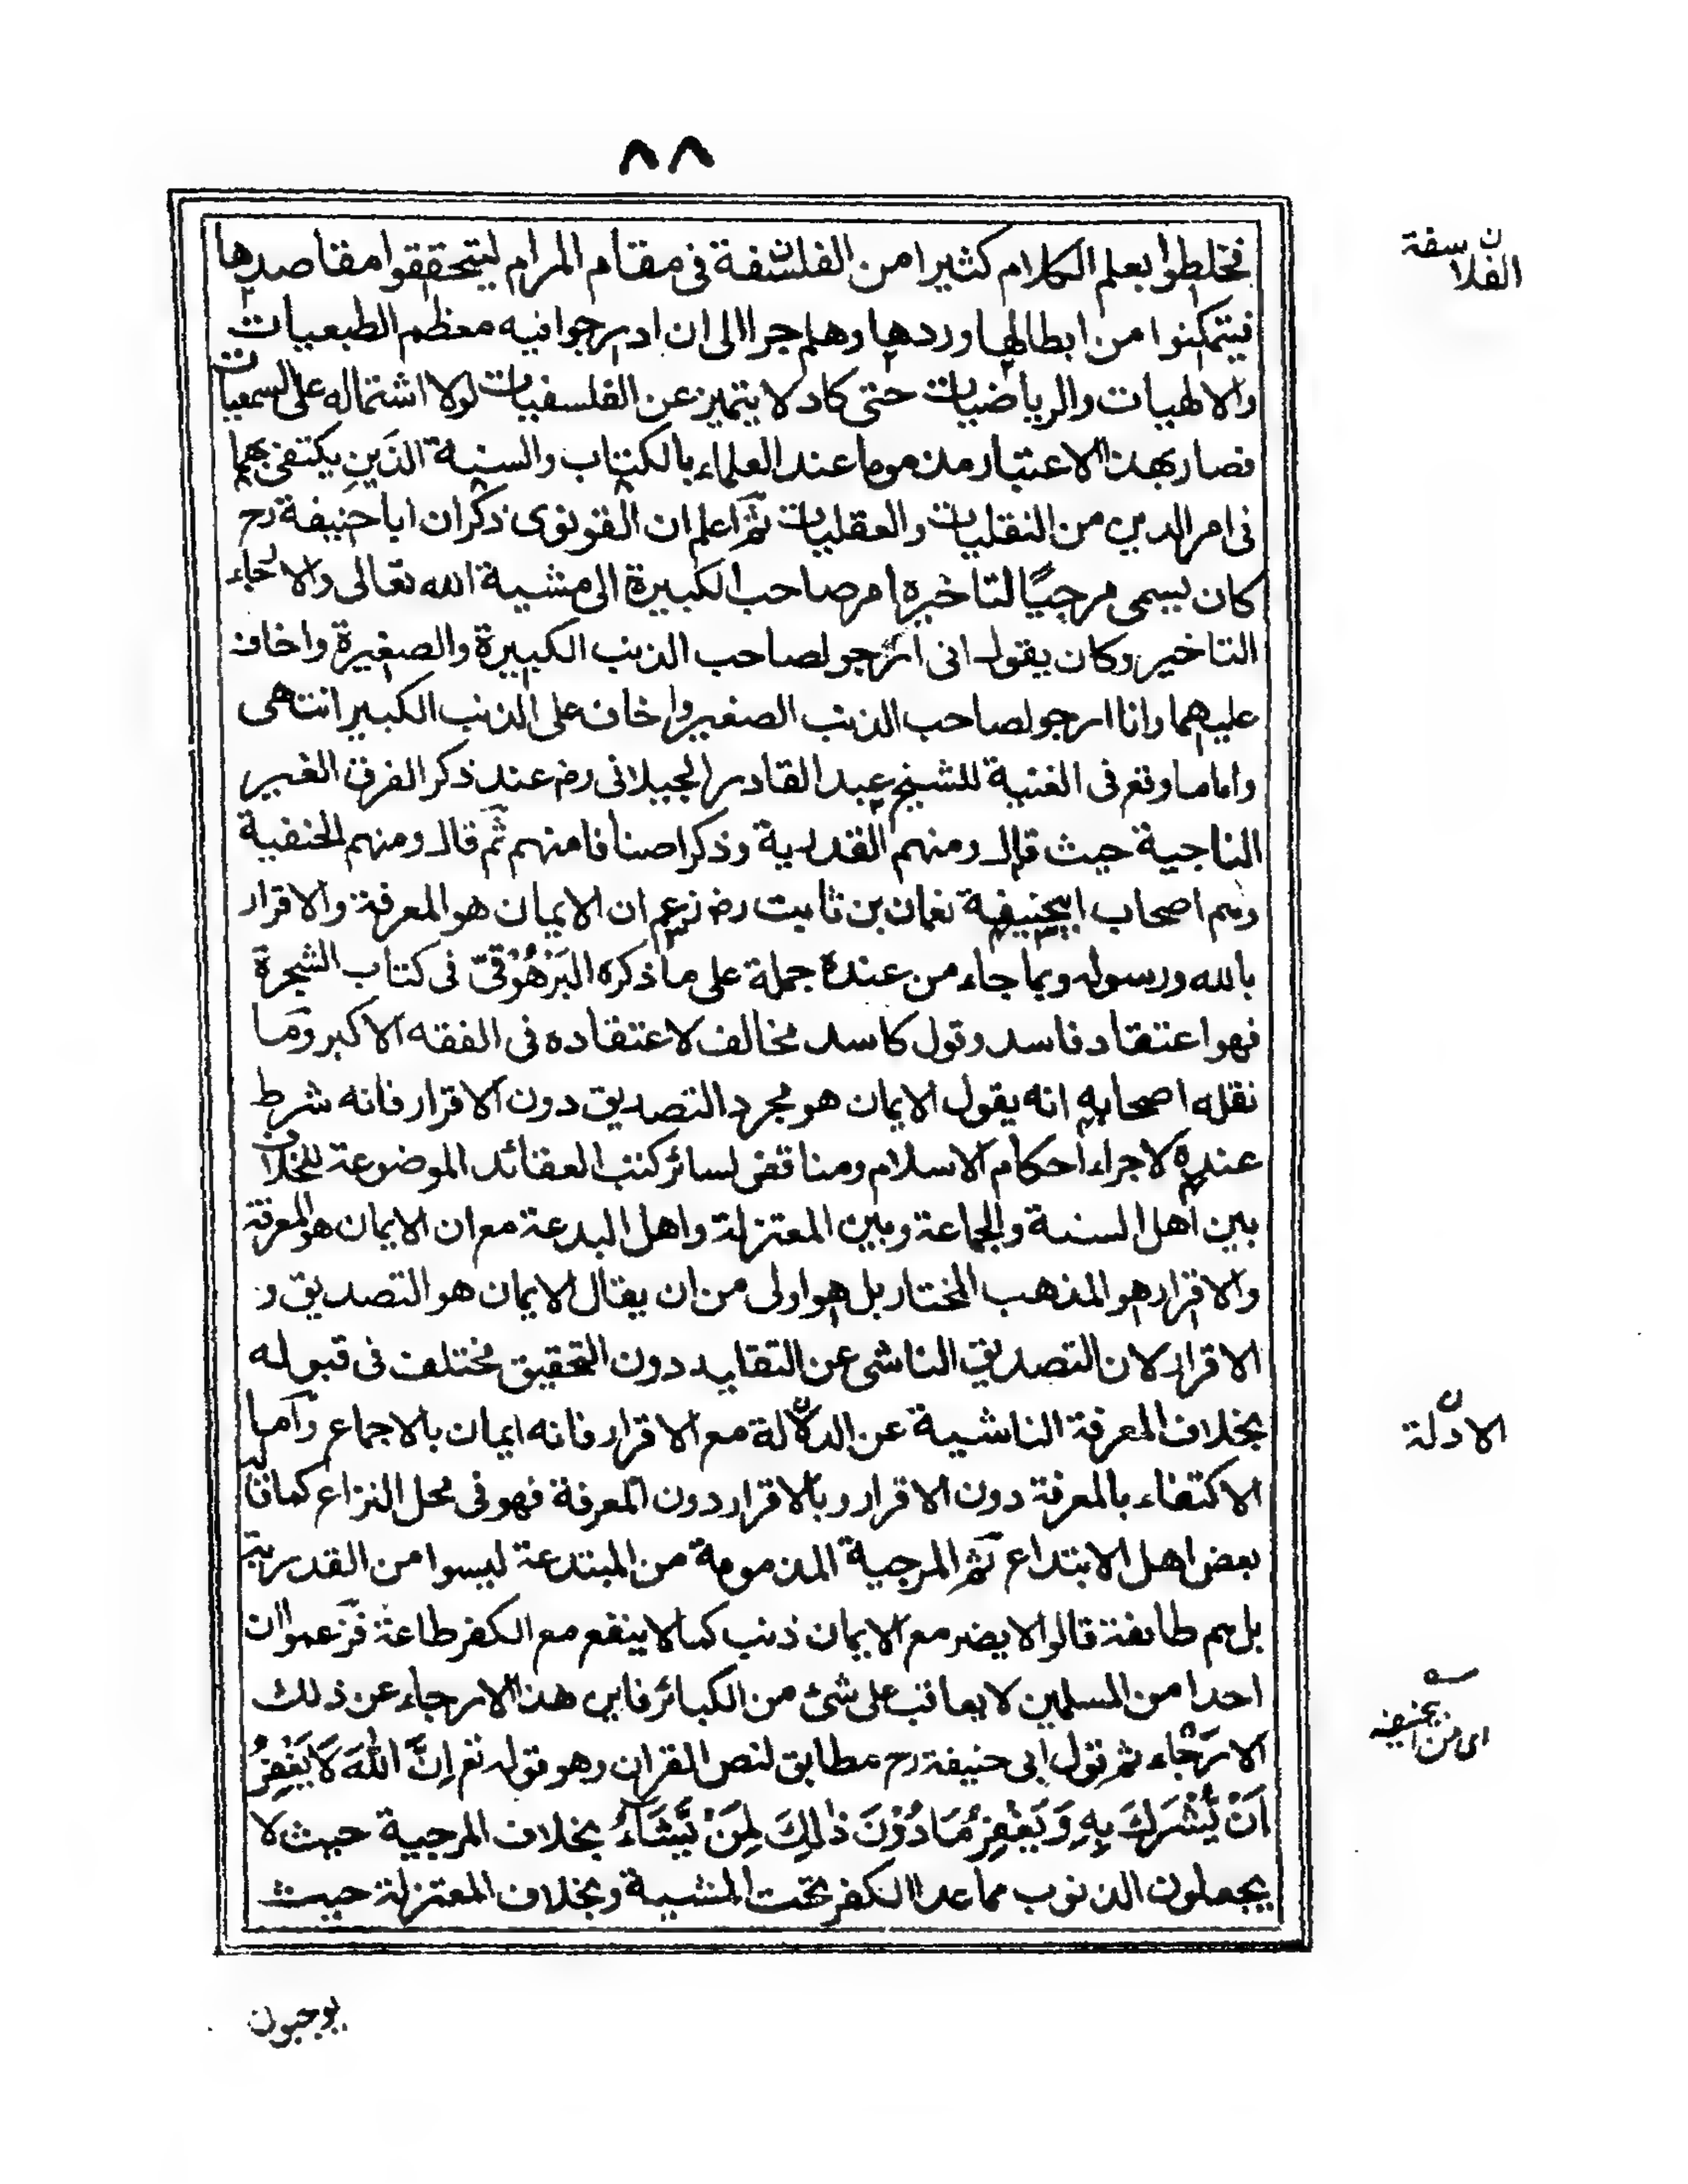 ٨٨
فخلطوا بعلم الكلام كثيرا من الفلسفة فى مقام المرام ليتحققوا مقاصدها
فيتمكنوا من ابطالها وردها وهلم جرا الى ان ادرجوا فيه معظم الطبعيات
والالهيات والرياضيات حتى كاد لا يتميز عن الفلسفيات لولا اشتماله على السمعيات
فصار بهذا الاعتبار مذموما عند العلماء بالكتاب والسنة الذين يكتفى بهما
فى امر الدين من النقليات والعقليات ثم اعلم ان القونوى ذكر ان ابا حنيفة رح
كان يسمى مرجيًا لتاخيره امر صاحب الكبيرة الى مشية الله تعالى والارجاء
التاخير وكان يقول انى ارجو لصاحب الذنب الكبيرة والصغيرة واخاف
عليهما وانا ارجو لصاحب الذنب الصغير واخاف على الذنب الكبير انتهى
واما ما وقع فى الغنية للشيخ عبد القادر الجيلانى رض عند ذكر الفرق الغير
الناجية حيث قال ومنهم القدرية وذكر اصنافا منهم ثم قال ومنهم الحنفية
وهم اصحاب ابيحنيفة نعمان بن ثابت رض زعم ان الايمان هو المعرفة والاقرار
بالله ورسوله وبما جاء من عنده جملة على ما ذكره البَرْهُوْقىّ فى كتاب الشجرة
فهو اعتقاد فاسد وقول كاسد مخالف لاعتقاده فى الفقه الاكبر وما
نقله اصحابه انه يقول الايمان هو مجرد التصديق دون الاقرار فانه شرط
عنده لاجراء احكام الاسلام ومناقض لسائر كتب العقائد الموضوعة للخلاف
بين اهل السنة والجماعة وبين المعتزلة واهل البدعة مع ان الايمان هو المعرفة
والاقرار هو المذهب المختار بل هو اولى من ان يقال الايمان هو التصديق و
الاقرار لان التصديق الناشى عن التقليد دون التحقيق مختلف فى قبوله
بخلاف المعرفة الناشية عن الدلالة مع الاقرار فانه ايمان بالاجماع واما
الاكتفاء بالمعرفة دون الاقرار وبالاقرار دون المعرفة فهو فى محل النزاع كما قاله
بعض اهل الابتداع ثم المرجية المذمومة من المبتدعة ليسوا من القدرية
بل هم طائفة قالوا لا يضر مع الايمان ذنب كما لا ينفع مع الكفر طاعة فزعموا ان
احدا من المسلمين لا يعاقب على شئ من الكبائر فاين هذا الارجاء عن ذلك
الارجاء ثم قول ابى حنيفة رح مطابق لنص القران وهو قوله تع اِنَّ اللهَ لَا يَغْفِرُ
اَنْ يُّشْرَكَ بِهِ وَيَغْفِرُ مَا دُوْنَ ذٰلِكَ لِمَنْ يَّشَاءُ بخلاف المرجية حيث لا
يجعلون الذنوب مما عدا الكفر تحت المشية وبخلاف المعتزلة حيث
يوجبون
الفلاسفة ن
الادلة ن